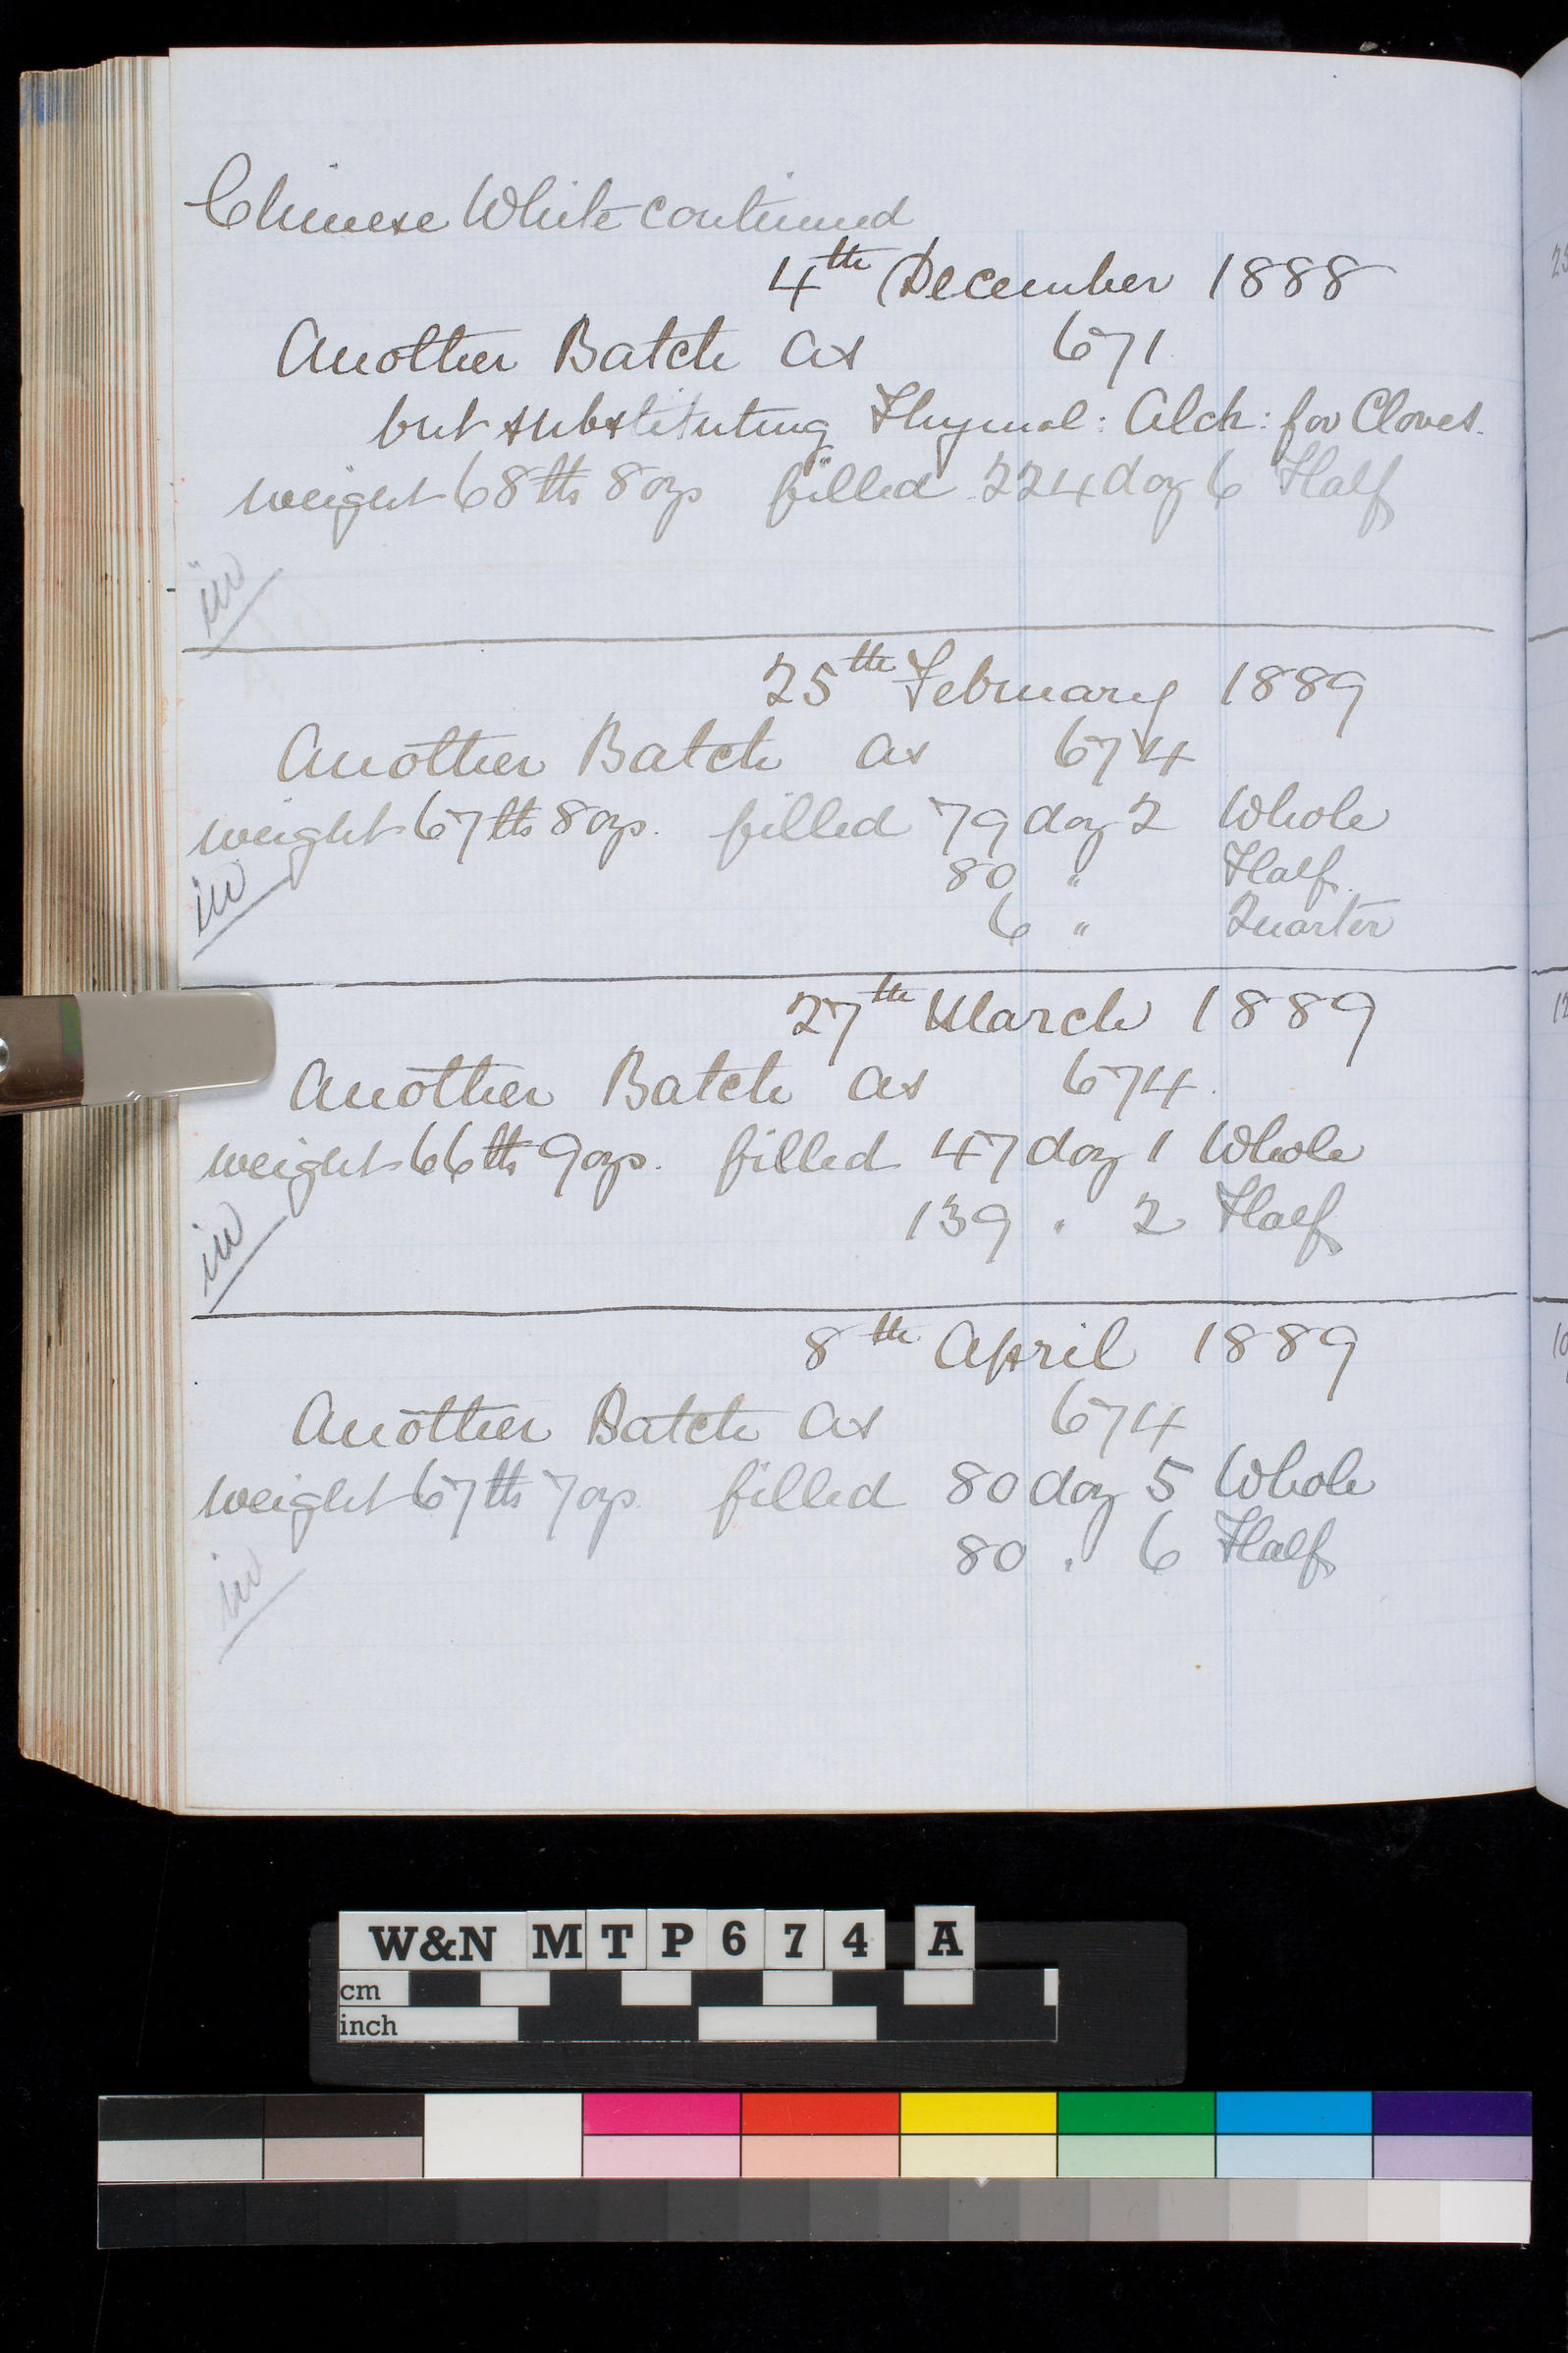 Chinese White continued
4th December 1888
Another Batch as 671
but substituting Thymol: Alch: for Cloves.
weight 68 lbs 8 ozs filled 224 doz 6 Half
in
25th February 1889
Another Batch as 674
weight 67 lbs 8 ozs. filled 79 doz 2 Whole
80 " Half.
6 " Quarter
in
27th March 1889
Another Batch as 674.
weight 66 lbs 9 ozs. filled 47 doz 1 Whole
139 " 2 Half
in
8th April 1889
Another Batch as 674
weight 67 lbs 7 ozs. filled 80 doz 5 Whole
80 " 6 Half
in
W&N MTP674 A
cm
inch